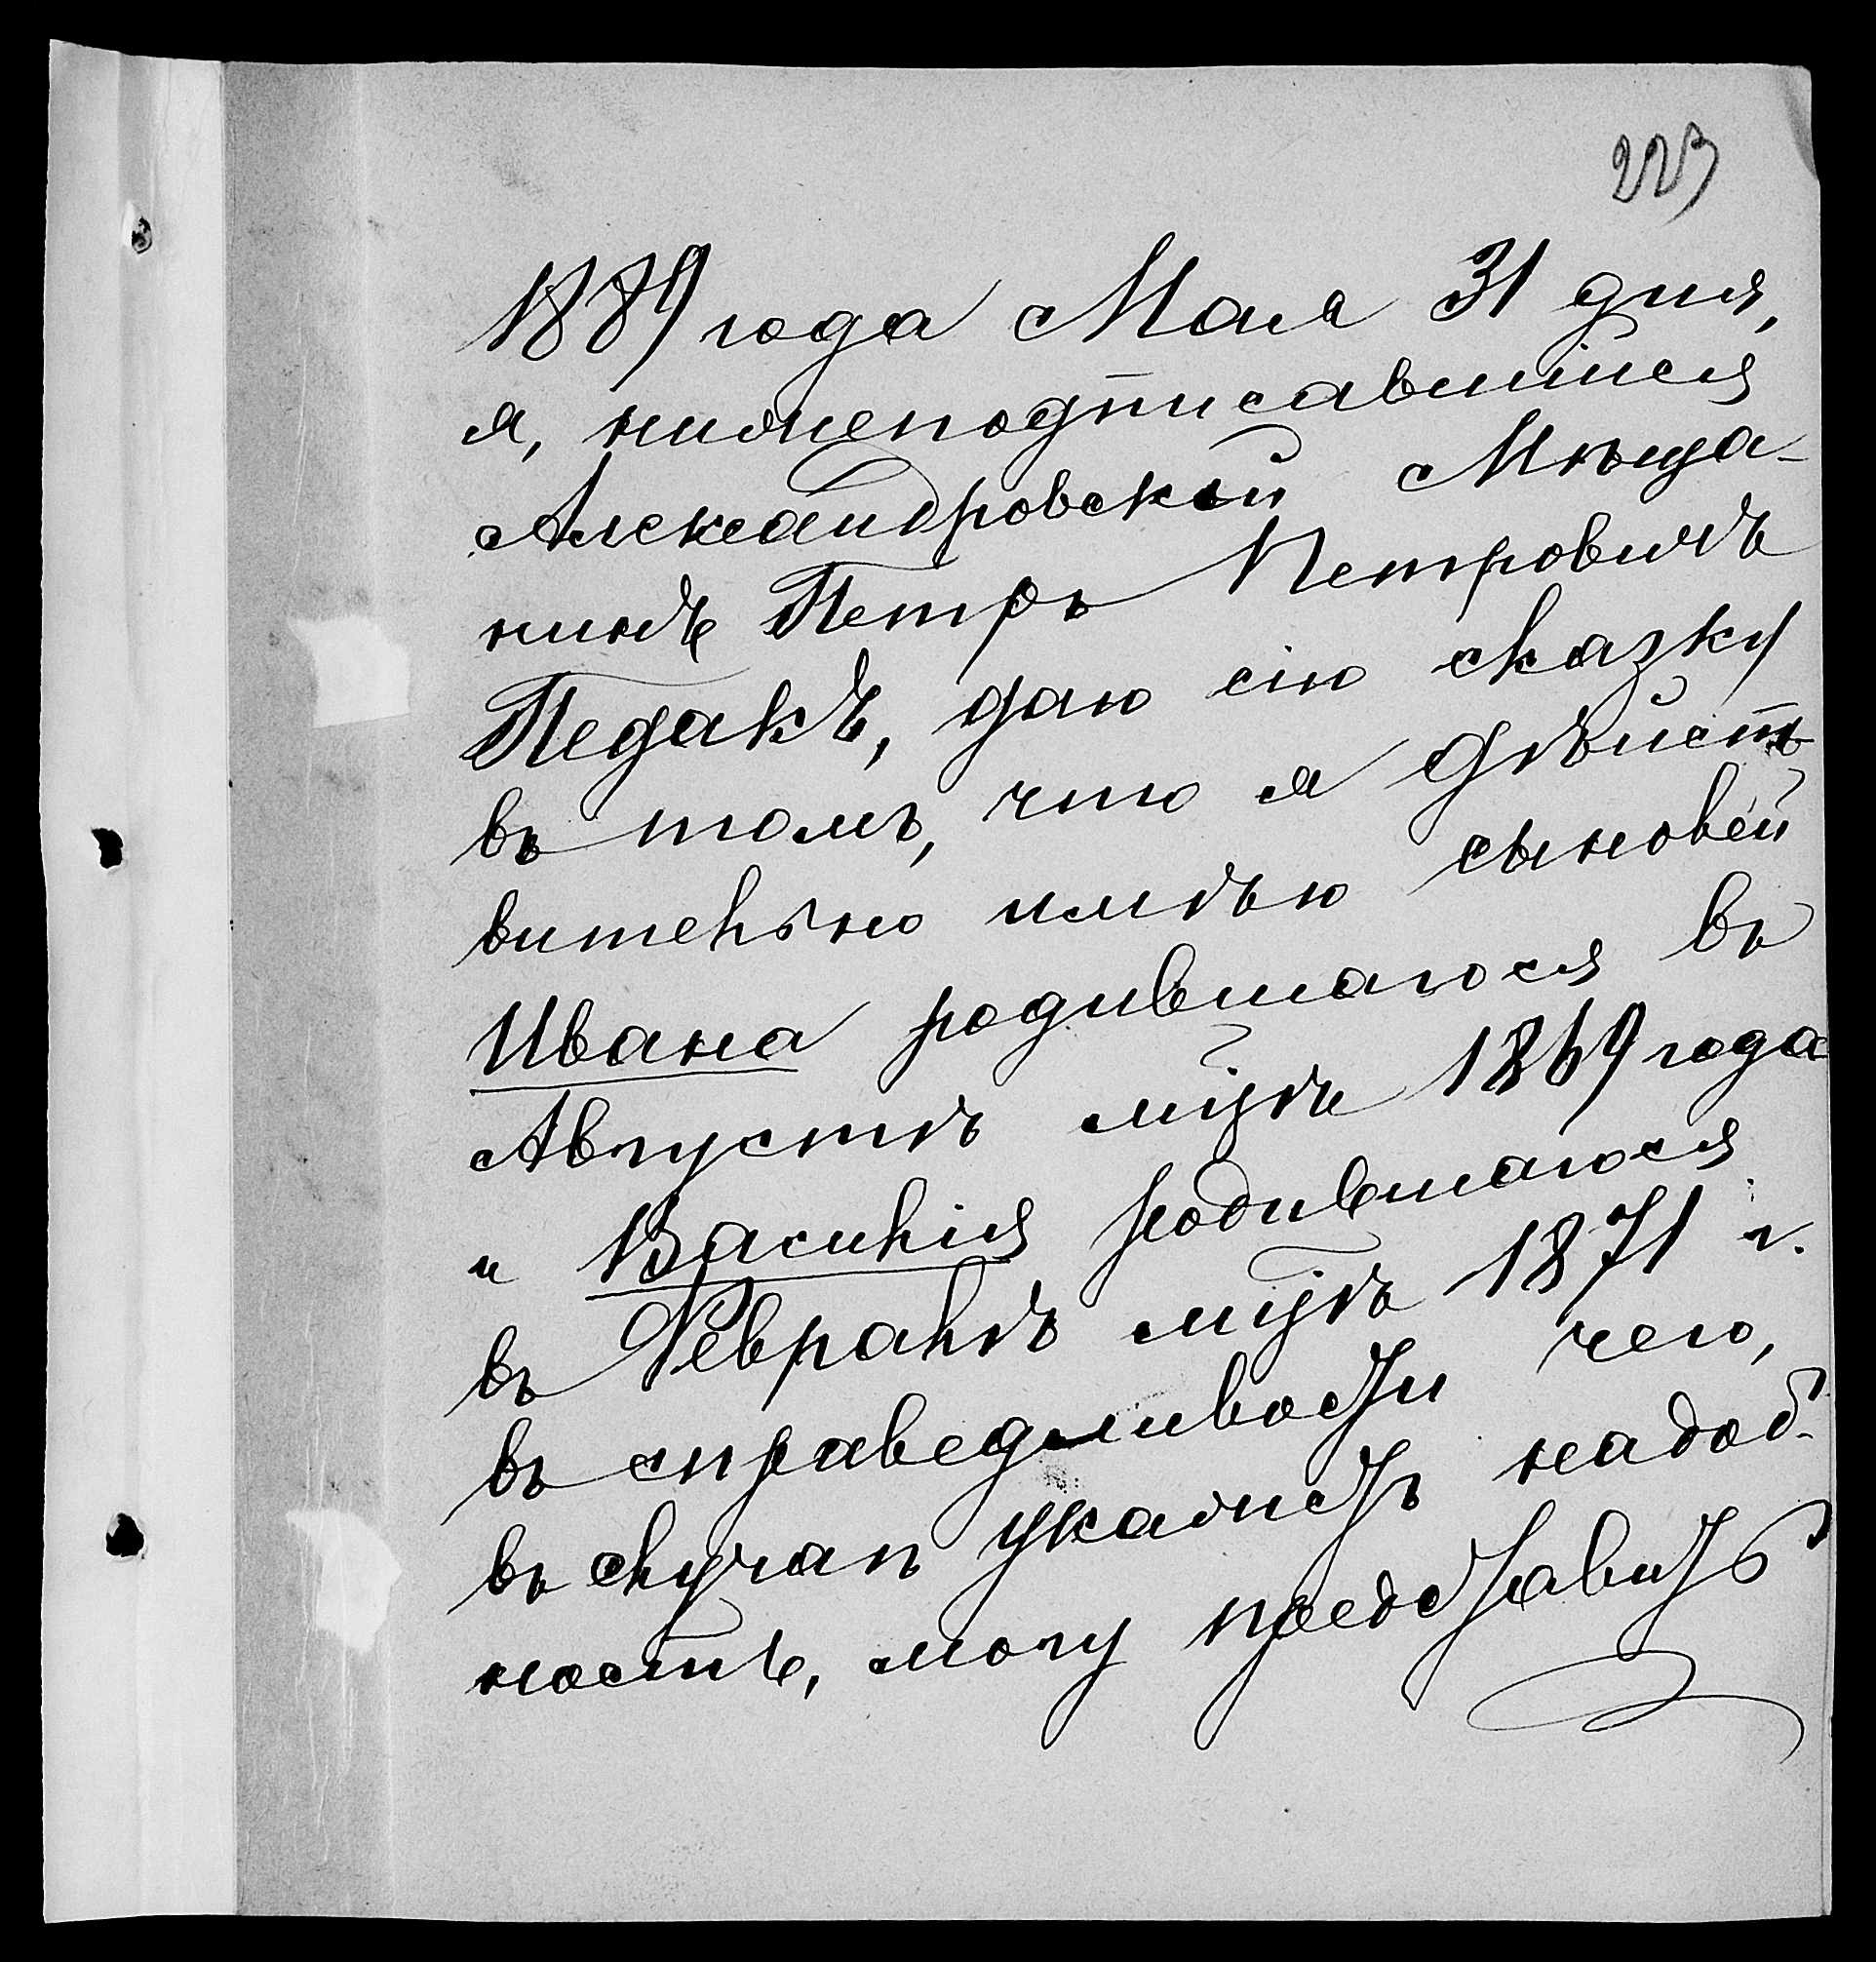 223
1889 года Мая 31 дня,
я, нижеподписавшийся
Александровскій Мѣща-
нинъ Петръ Петровичъ
Педакъ, даю сію сказку
въ томъ, что я дѣйст-
вительно имѣю сыновей
Ивана родившагося въ
Августѣ мцѣ 1869 года
и Василія родившагося
въ Февралѣ мцѣ 1871 г.
въ справедливости чего,
въ случаѣ укажетъ надоб-
ность, могу представить